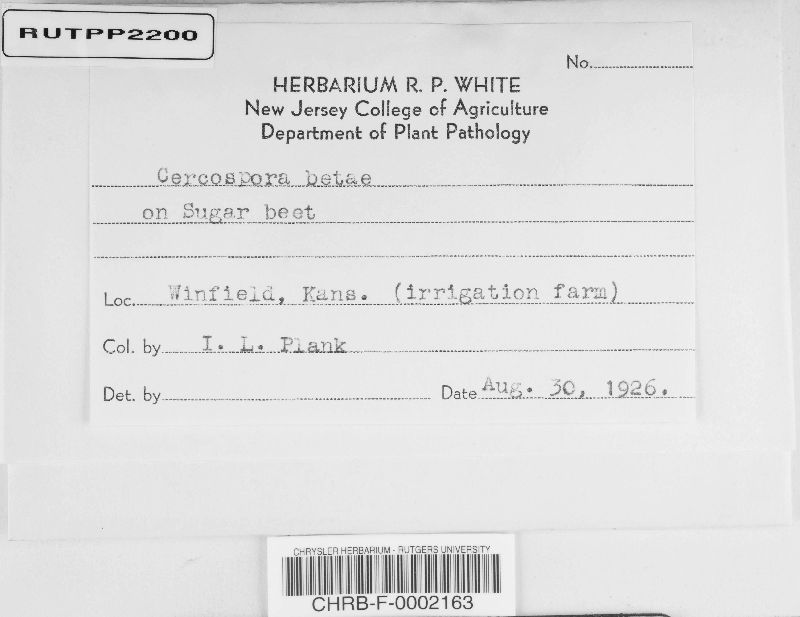 RUTPP2200
No.
HERBARIUM R. P. WHITE
New Jersey College of Agriculture
Department of Plant Pathology
Cercospora betae
on Sugar beet
Loc. Winfield, Kans. (irrigation farm)
Col. by I. L. Plank
Det. by Date Aug. 30, 1926.
CHRYSLER HERBARIUM - RUTGERS UNIVERSITY
CHRB-F-0002163